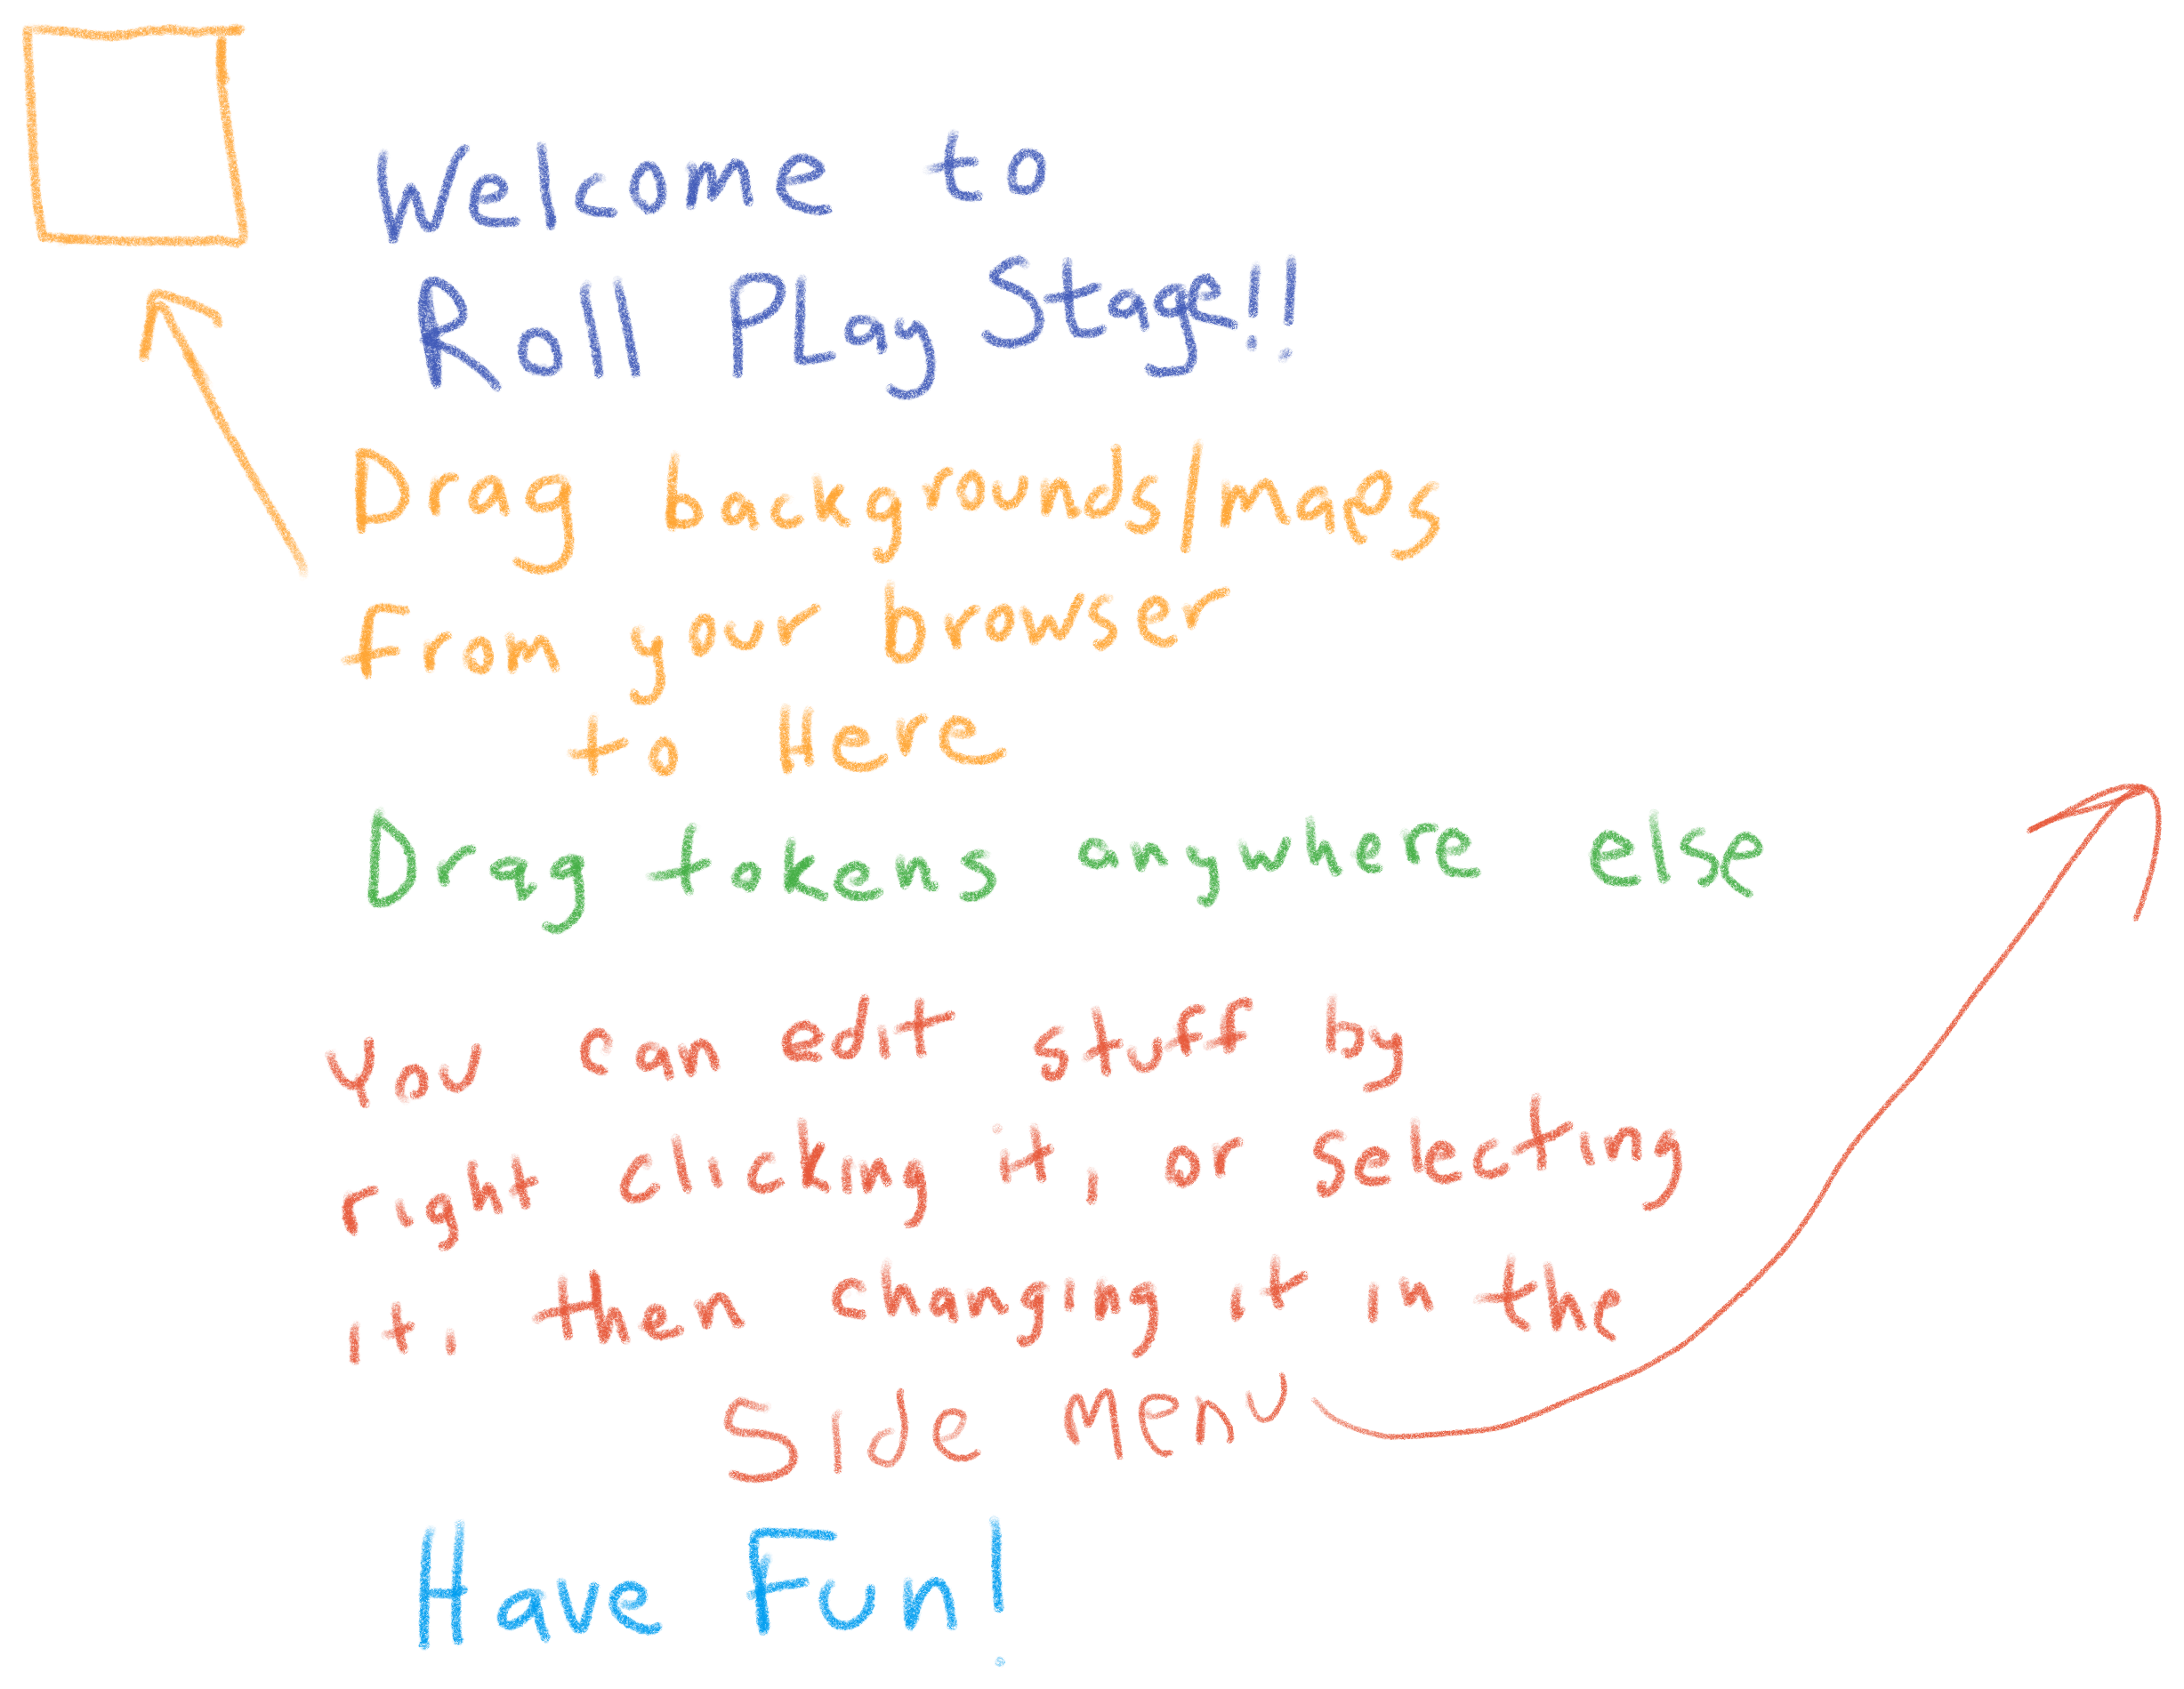 Welcome to
Roll PLay Stage!!
Drag backgrounds/maps
from your browser
to Here
Drag tokens anywhere else
You can edit stuff by
right clicking it, or selecting
it, then changing it in the
Side Menu
Have Fun!